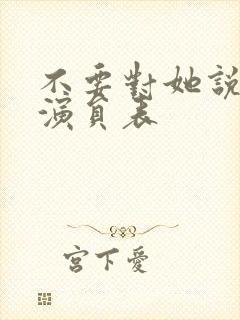 不要對她說
演員表
宮下愛